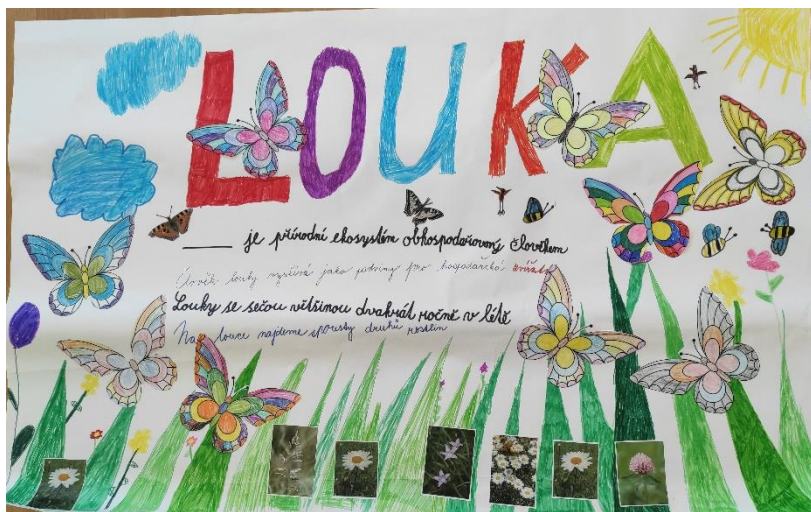 LOUKA
____ je přírodní ekosystém obhospodařovaný člověkem
Člověk louky využívá jako potraviny pro hospodářská zvířata
Louky se sečou většinou dvakrát ročně v létě
Na louce najdeme spousty druhů rostlin